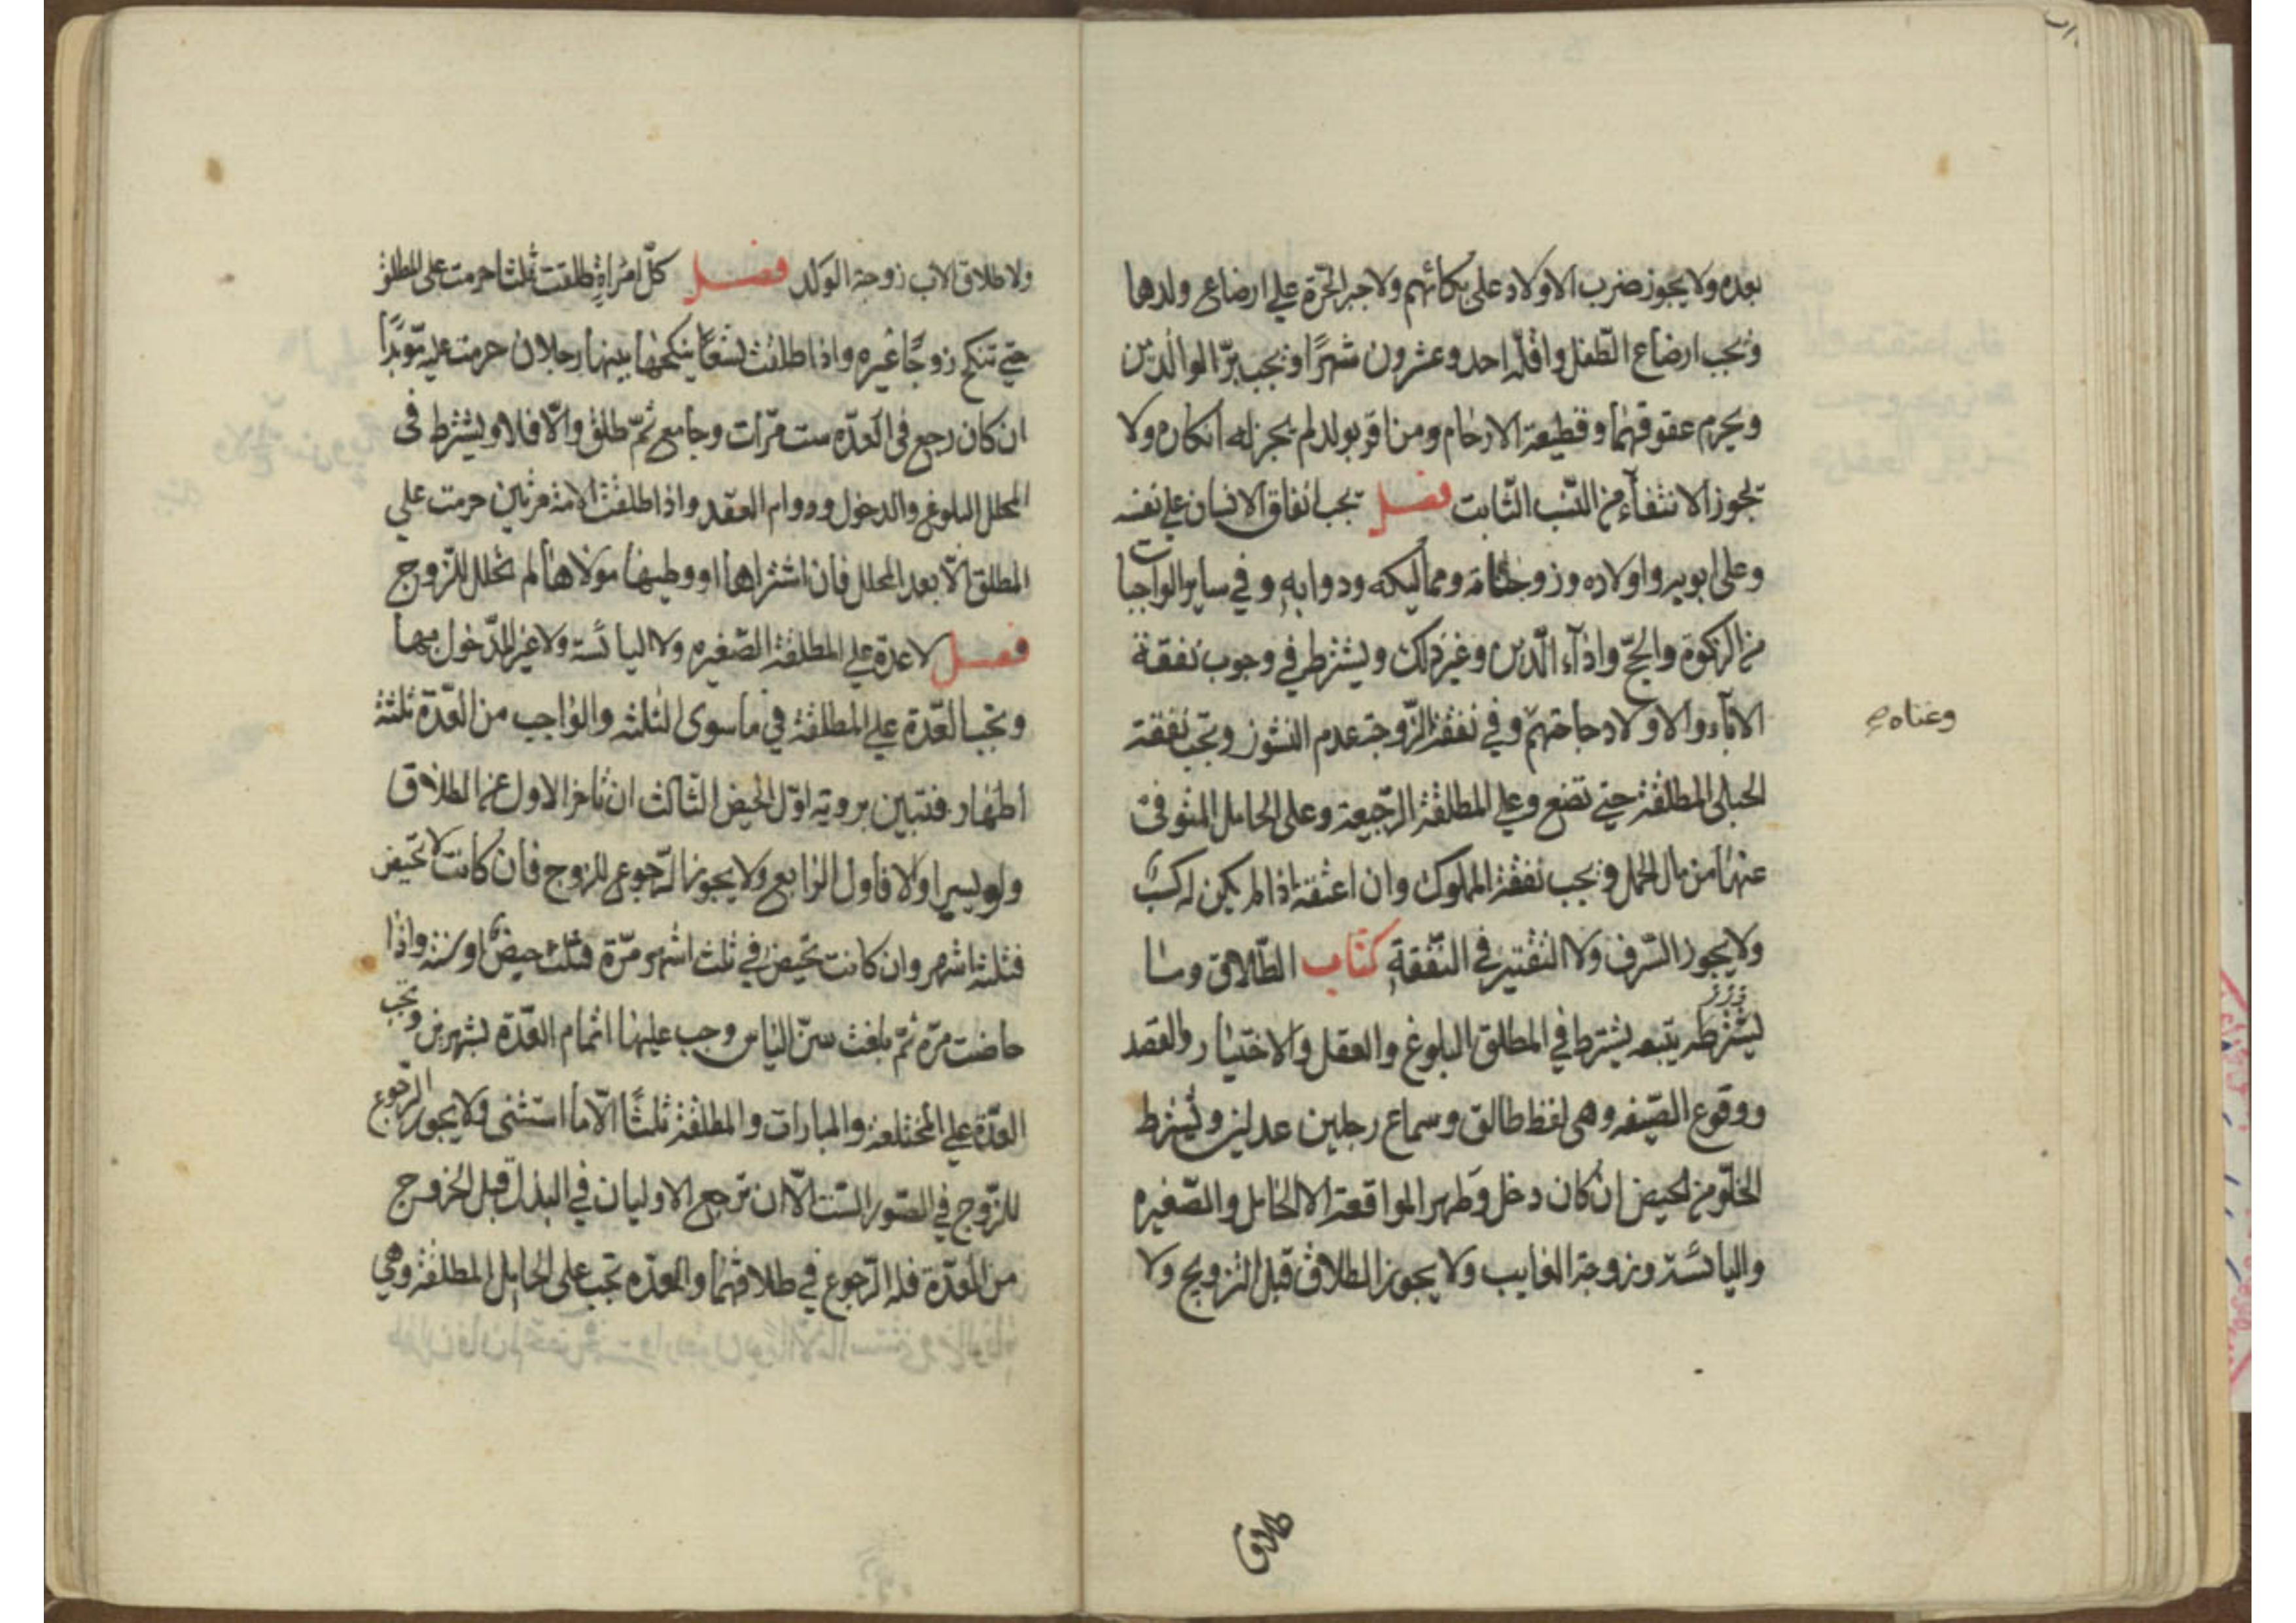 بعده ولا يجوز ضرب الاولاد على بكائهم ولا جبر الحرّة على ارضاع ولدها
ويجب ارضاع الطّفل واقلّه احد وعشرون شهرًا ويجب برّ الوالدين
ويحرم عقوقهما وقطيعة الارحام ومن اقر بولد لم يجز له انكاره ولا
يجوز الانتفاء من النّسب الثّابت فصل يجب انفاق الانسان على نفسه
وعلى ابويه واولاده وزوجاته ومماليكه ودوابه وفي ساير الواجبات
من الزكوة والحجّ واداء الدّين وغير ذلك ويشترط في وجوب نفقة
الاباء والاولاد حاجتهم وفي نفقة الزّوجة عدم النشوز وتجب نفقة
وغناه
الحبلى المطلقة حتى تضع وعلى المطلقة الرّجيعة وعلى الحامل المتوفى
عنها من مال الحمل ويجب نفقة المملوك وان اعتقه اذا لم يكن له كسب
ولا يجوز السّرف ولا التقتير في النّفقة كتاب الطّلاق وما
يشترط يتبعه يشترط في المطلق البلوغ والعقل والاختيار والقصد
ووقوع الصّيغه وهي لفظ طالق وسماع رجلين عدلين ويشترط
الخلّو من الحيض ان كان دخل وطهر المواقعة الا الحامل والصّغيره
واليائسة وزوجة الغايب ولا يجوز الطلاق قبل التزويج ولا
طلاق
ولا طلاق الاب زوجة الولد فصل كلّ امراةٍ طلقت ثلثا حرمت على المطلق
حتى تنكح زوجًا غيره واذا طلقت تسعًا ينكحها بينها رجلان حرمت عليه مؤبدًا
ان كان رجع في العدّه ست مرّات وجامع ثمّ طلق والّا فلا ويشترط في
المحلل البلوغ والدخول ودوام العقد واذا طلقت الامة مرتين حرمت على
المطلق الّا بعد المحلل فان اشتراها او وطيها مولاها لم تحلل للزّوج
فصل لا عدة على المطلقة الصّغيره ولا اليائسة ولا غير المدّخول بها
وتجب العّدة على المطلقة في ما سوى الثلثه والواجب من العّدة ثلثة
اطهار فتبين برويه اوّل الحيض الثّالث ان تاخر الاول عن الطلاق
ولو يسيرا ولا فاول الرّابع ولا يجوز الرّجوع للزوج فان كانت لا تحيض
فثلثة اشهر وان كانت تحيض في ثلث اشهر مرّة فثلث حيض او سنة واذا
حاضت مرّه ثمّ بلغت سنّ الياس وجب عليها اتمام العّدة بشهرين وتجب
العدّة على المختلعة والمبارات والمطلقة ثلثًا الّا ما استثنى ولا يجوز الرّجوع
للزّوج في الصّور السّت الّا ان ترجع الاوليان في البذل قبل الخروج
من العدّة فله الرّجوع في طلاقهما والعدّه تجب على الحامل المطلقة وهي